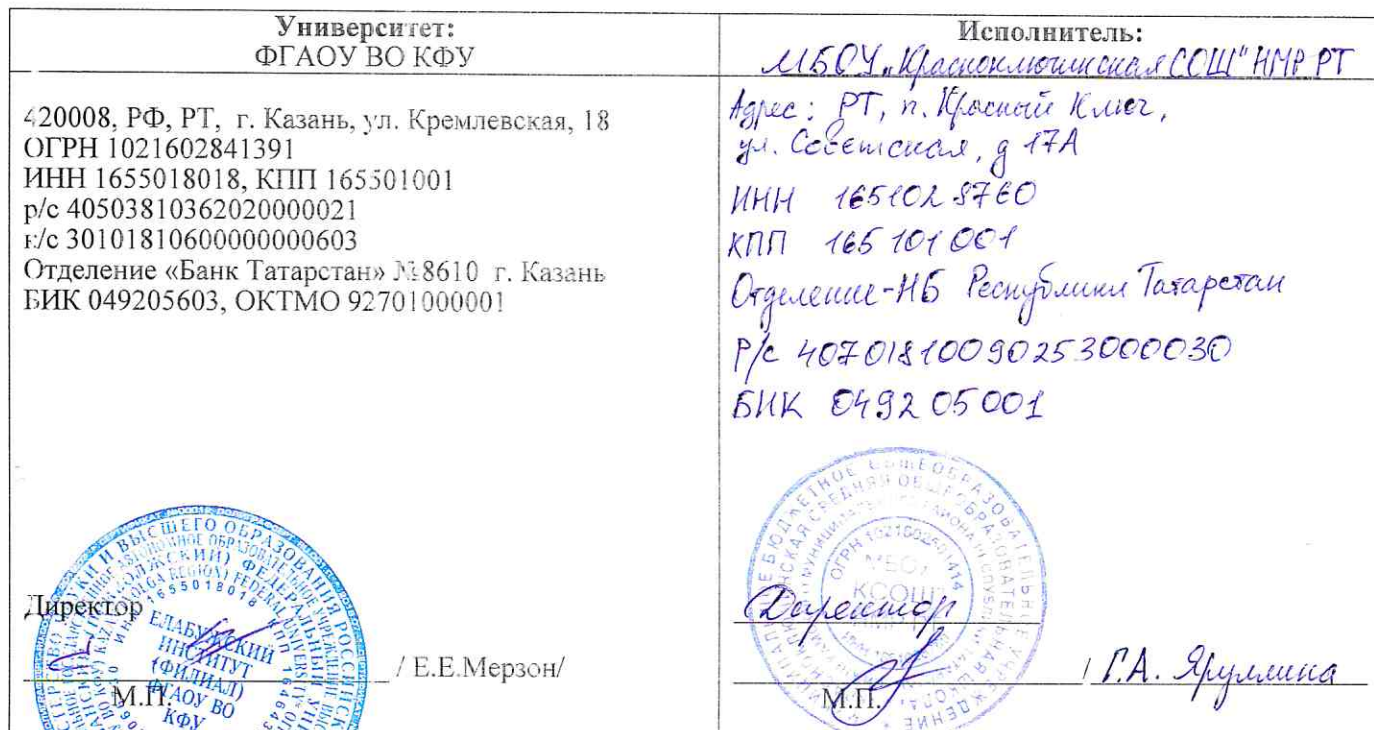 Университет:
ФГАОУ ВО КФУ
420008, РФ, РТ, г. Казань, ул. Кремлевская, 18
ОГРН 1021602841391
ИНН 1655018018, КПП 165501001
р/с 40503810362020000021
к/с 30101810600000000603
Отделение «Банк Татарстан» №8610 г. Казань
БИК 049205603, ОКТМО 92701000001
Директор
/ Е.Е.Мерзон/
М.П.
ЕЛАБУЖСКИЙ
ИНСТИТУТ
(ФИЛИАЛ)
ФГАОУ ВО
КФУ
Исполнитель:
МБОУ „Красноключинская СОШ" НМР РТ
Адрес: РТ, п. Красный Ключ,
ул. Советская, д 17А
ИНН 1651028760
КПП 165101001
Отделение-НБ Республики Татарстан
Р/с 40701810090253000030
БИК 049205001
МБОУ
КСОШ
Директор
/ Г.А. Яруллина
М.П.